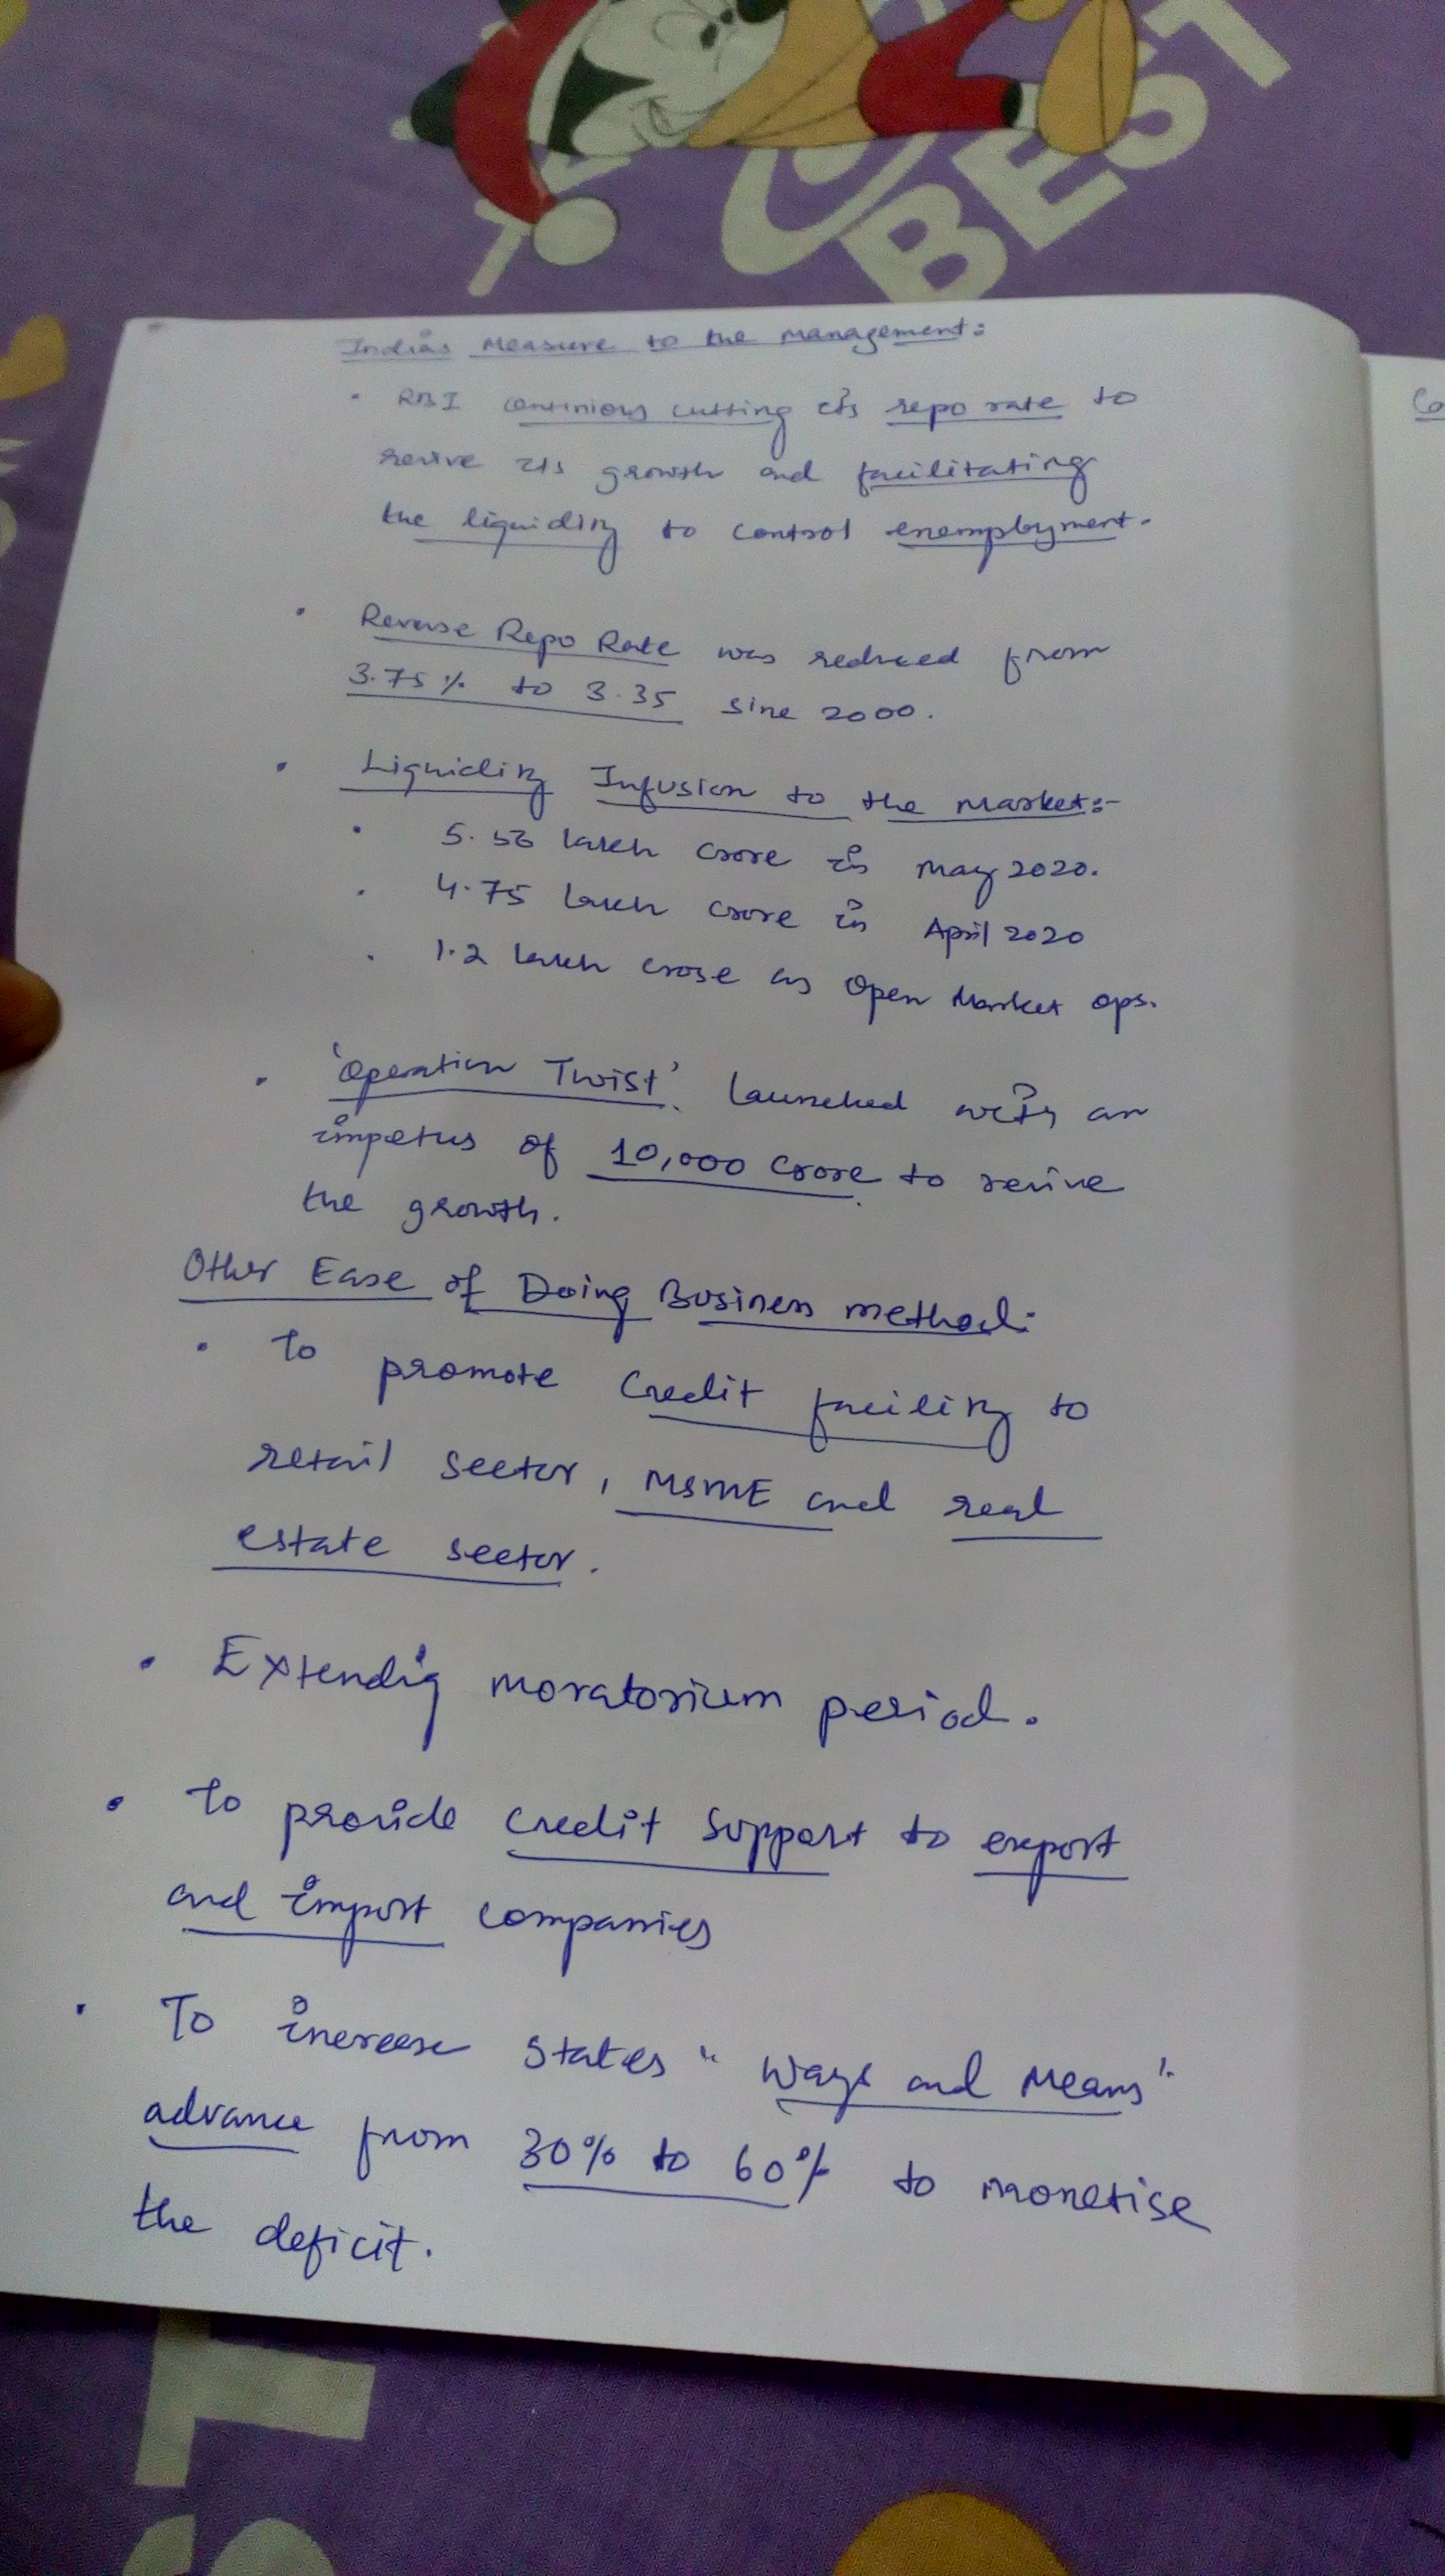 BEST
Indias Measure to the Management:
• RBI continious cutting its repo rate to
revive its growth and facilitating
the liquidity to control enemployment.
• Reverse Repo Rate was reduced from
3.75% to 3.35 sine 2000.
• Liquidity Infusion to the Market:-
• 5.53 lakh crore in May 2020.
• 4.75 lakh crore in April 2020
• 1.2 lakh crore as Open Market ops.
• 'Operation Twist' launched with an
impetus of 10,000 crore to revive
the growth.
Other Ease of Doing Business method:
• To promote Credit facility to
retail sector, MSME and real
estate sector.
• Extendig moratorium period.
• To provide credit support to export
and import companies
• To increase States "Ways and Means"
advance from 30% to 60% to monetise
the deficit.
Co